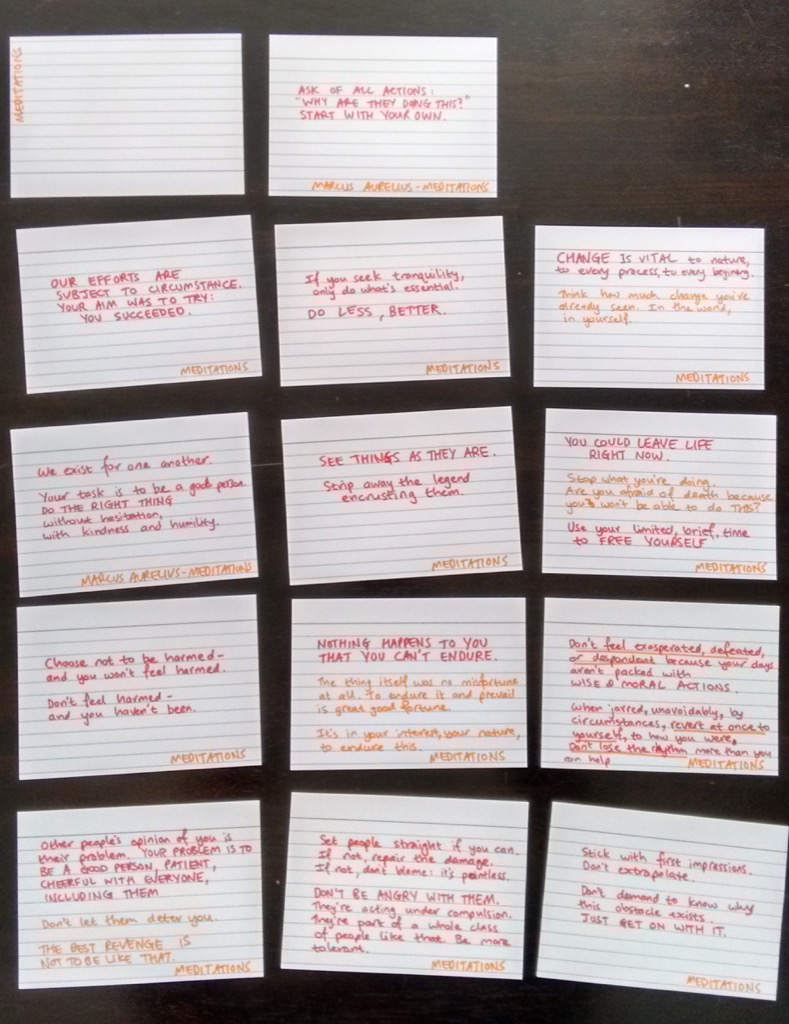 MEDITATIONS
ASK OF ALL ACTIONS:
"WHY ARE THEY DOING THIS?"
START WITH YOUR OWN.
MARCUS AURELIUS - MEDITATIONS
OUR EFFORTS ARE
SUBJECT TO CIRCUMSTANCE.
YOUR AIM WAS TO TRY:
YOU SUCCEEDED.
MEDITATIONS
If you seek tranquility,
only do what's essential.
DO LESS, BETTER.
MEDITATIONS
CHANGE IS VITAL to nature,
to every process, to every beginning.
Think how much change you've
already seen. In the world,
in yourself.
MEDITATIONS
We exist for one another.
Your task is to be a good person.
DO THE RIGHT THING
without hesitation,
with kindness and humility.
MARCUS AURELIUS - MEDITATIONS
SEE THINGS AS THEY ARE.
Strip away the legend
encrusting them.
MEDITATIONS
YOU COULD LEAVE LIFE
RIGHT NOW.
Stop what you're doing.
Are you afraid of death because
you won't be able to do THIS?
Use your limited, brief, time
to FREE YOURSELF
MEDITATIONS
Choose not to be harmed –
and you won't feel harmed.
Don't feel harmed –
and you haven't been.
MEDITATIONS
NOTHING HAPPENS TO YOU
THAT YOU CAN'T ENDURE.
The thing itself was no misfortune
at all. To endure it and prevail
is great good fortune.
It's in your interest, your nature,
to endure this.
MEDITATIONS
Don't feel exasperated, defeated,
or despondent because your days
aren't packed with
WISE & MORAL ACTIONS.
When jarred, unavoidably, by
circumstances, revert at once to
yourself, to how you were,
Don't lose the rhythm more than you
can help
MEDITATIONS
Other people's opinion of you is
their problem. YOUR PROBLEM IS TO
BE A GOOD PERSON, PATIENT,
CHEERFUL WITH EVERYONE,
INCLUDING THEM
Don't let them deter you.
THE BEST REVENGE IS
NOT TO BE LIKE THAT.
MEDITATIONS
Set people straight if you can.
If not, repair the damage.
If not, don't blame: it's pointless.
DON'T BE ANGRY WITH THEM.
They're acting under compulsion.
They're part of a whole class
of people like that. Be more
tolerant.
MEDITATIONS
Stick with first impressions.
Don't extrapolate.
Don't demand to know why
this obstacle exists.
JUST GET ON WITH IT.
MEDITATIONS